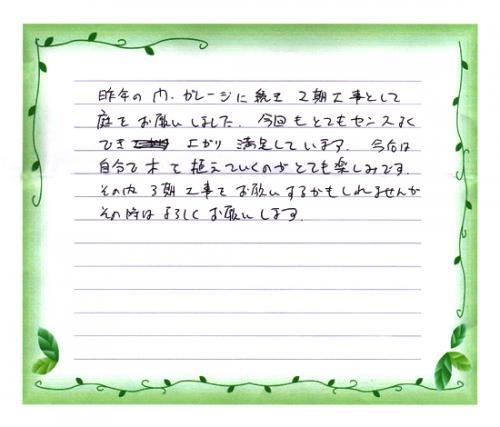 昨年の門.ガレージに続き 2期工事として
庭を お願いしました. 今回もとてもセンスよく
でき 上がり 満足しています. 今后は
自分で木を 植えていくのがとても楽しみです.
その内 3期工事を お願いするかもしれませんが
その時は よろしく お願いします.